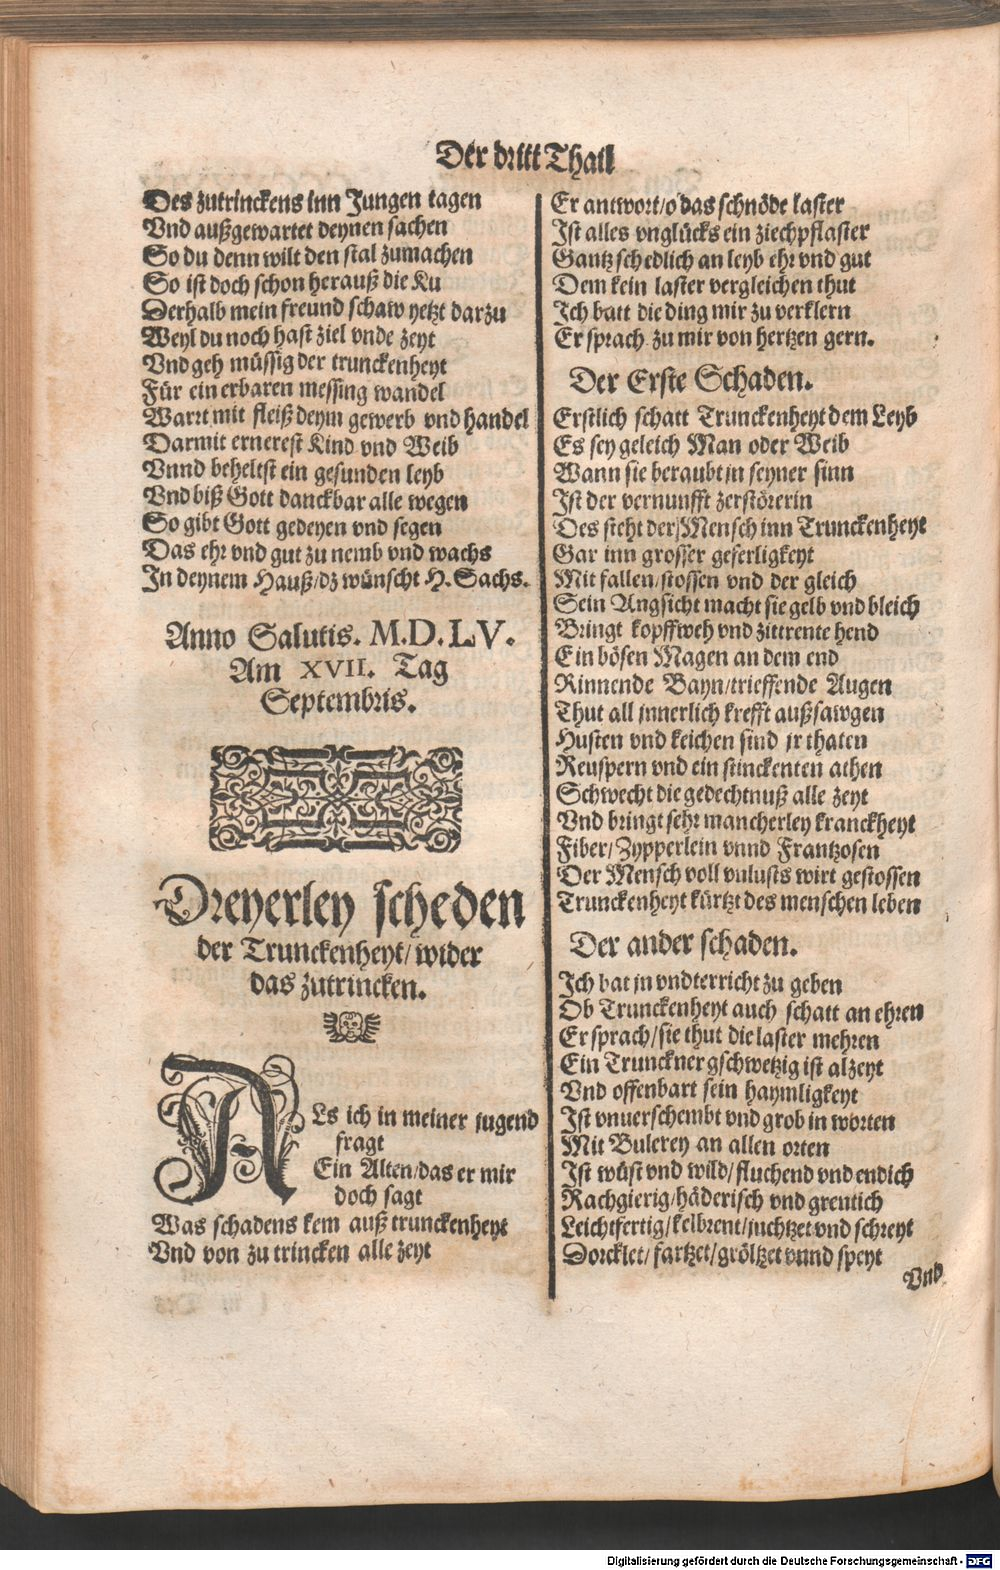 Der dritt Thail
Des zutrinckens inn Jungen tagen
Vnd außgewartet deynen sachen
So du denn wilt den stal zumachen
So ist doch schon herauß die Ku
Derhalb mein freund schaw yetzt darzu
Weyl du noch hast ziel vnde zeyt
Vnd geh müssig der trunckenheyt
Für ein erbaren messing wandel
Wart mit fleiß deym gewerb vnd handel
Darmit ernerest Kind vnd Weib
Vnnd beheltst ein gesunden leyb
Vnd biß Gott danckbar alle wegen
So gibt Gott gedeyen vnd segen
Das ehr vnd gut zu nemb vnd wachs
In deynem Hauß/dz wünscht H. Sachs.
Anno Salutis. M.D.LV.
Am XVII. Tag
Septembris.
Dreyerley scheden
der Trunckenheyt/ wider
das zutrincken.
ALs ich in meiner jugend
fragt
Ein Alten/das er mir
doch sagt
Was schadens kem auß trunckenheyt
Vnd von zu trincken alle zeyt
Er antwort/o das schnöde laster
Ist alles vnglücks ein ziechpflaster
Gantz schedlich an leyb ehr vnd gut
Dem kein laster vergleichen thut
Ich batt die ding mir zu verklern
Er sprach zu mir von hertzen gern.
Der Erste Schaden.
Erstlich schatt Trunckenheyt dem Leyb
Es sey geleich Man oder Weib
Wann sie beraubt jn seyner sinn
Ist der vernunfft zerstörerin
Des steht der Mensch inn Trunckenheyt
Gar inn grosser geferligkeyt
Mit fallen/stossen vnd der gleich
Sein Angsicht macht sie gelb vnd bleich
Bringt kopffweh vnd zittrente hend
Ein bösen Magen an dem end
Rinnende Bayn/trieffende Augen
Thut all jnnerlich krefft außsawgen
Husten vnd keichen sind jr thaten
Reuspern vnd ein stinckenten athen
Schwecht die gedechtnuß alle zeyt
Vnd bringt sehr mancherley kranckheyt
Fiber/ Zypperlein vnnd Frantzosen
Der Mensch voll vnlusts wirt gestossen
Trunckenheyt kürtzt des menschen leben
Der ander schaden.
Ich bat jn vndterricht zu geben
Ob Trunckenheyt auch schatt an ehren
Er sprach/sie thut die laster mehren
Ein Trunckner gschwetzig ist alzeyt
Vnd offenbart sein haymligkeyt
Ist vnuerschembt vnd grob in worten
Mit Bulerey an allen orten
Ist wüst vnd wild/ fluchend vnd endich
Rachgierig/häderisch vnd grentich
Leichtfertig/kelbrent/juchtzet vnd schreyt
Dorcklet/ fartzet/gröltzet vnnd speyt
Vnd
Digitalisierung gefördert durch die Deutsche Forschungsgemeinschaft - DFG